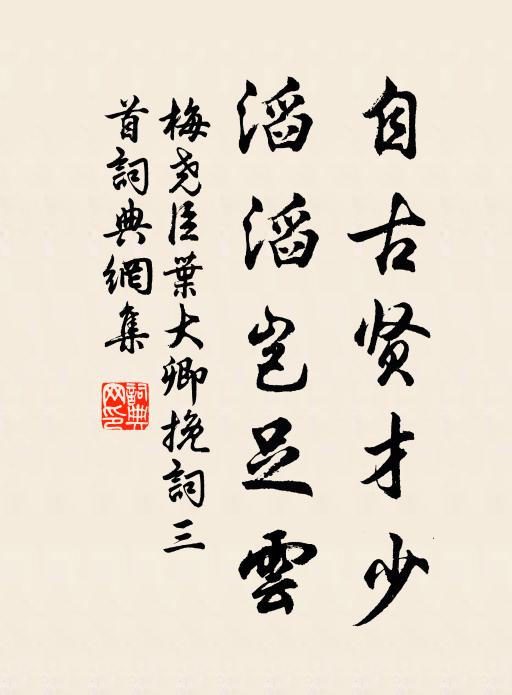 自古贤才少
滔滔岂足雲
梅尧臣葉大卿挽詞三
首詞典網集
詞典
网印